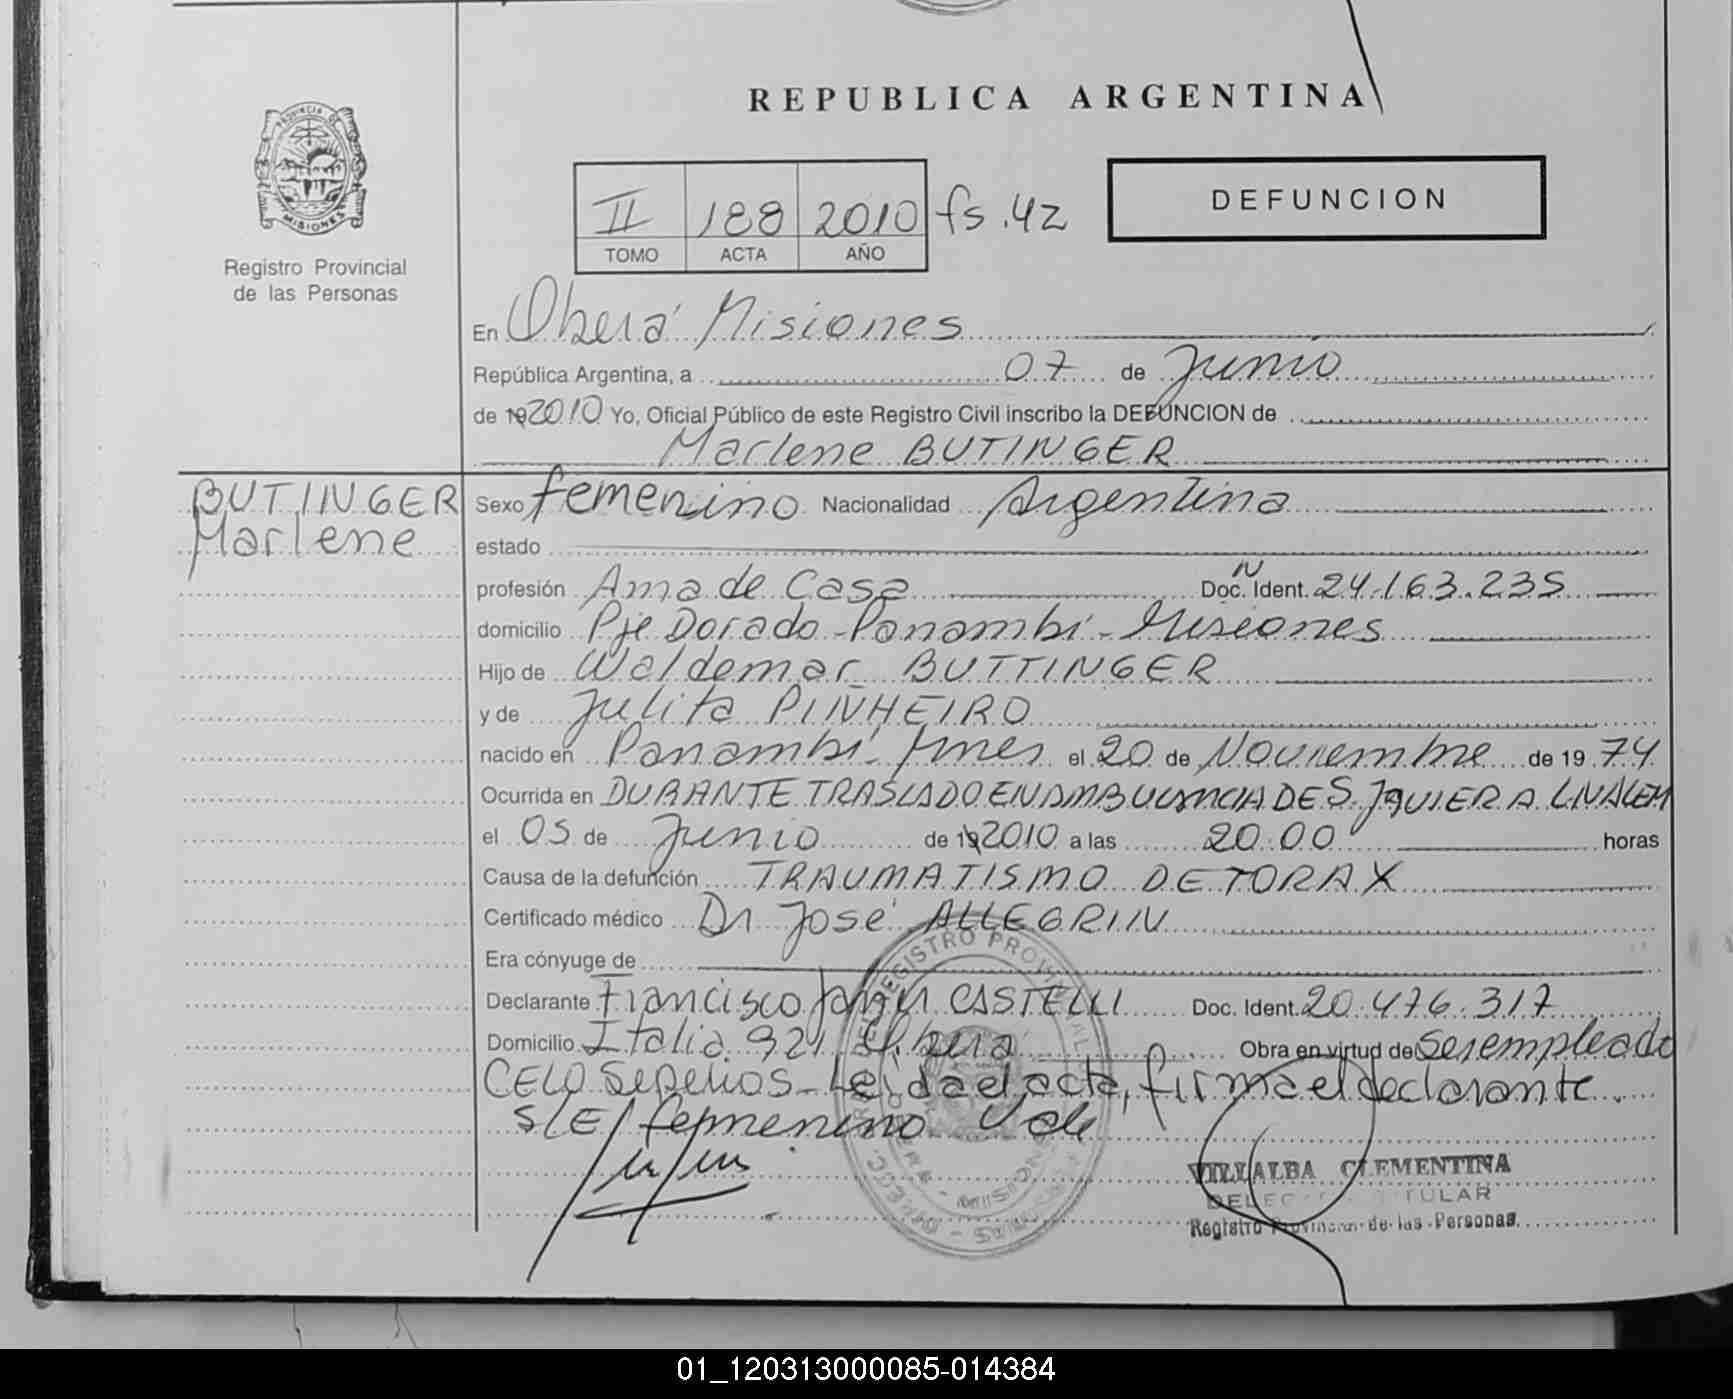 REPUBLICA ARGENTINA
PROVINCIA DE MISIONES
Registro Provincial
de las Personas
II 188 2010 fs. 42
TOMO ACTA AÑO
DEFUNCION
En Oberá Misiones
República Argentina, a 07 de Junio
de 19 2010 Yo, Oficial Público de este Registro Civil inscribo la DEFUNCION de
Marlene BUTINGER
BUTINGER
Marlene
Sexo femenino Nacionalidad Argentina
estado
profesión Ama de Casa Doc. N Ident. 24.163.235
domicilio Pje Dorado - Panambí - Misiones
Hijo de Waldemar BUTTINGER
y de Julita PIÑHEIRO
nacido en Panambí Mnes el 20 de Noviembre de 19 74
Ocurrida en DURANTE TRASLADO EN AMBULANCIA DE S. JAVIER A LNALEM
el 05 de Junio de 19 2010 a las 20:00 horas
Causa de la defunción TRAUMATISMO DE TORAX
Certificado médico Dr José ALLEGRIN
Era cónyuge de
Declarante Francisco Javier CASTELLI Doc. Ident. 20.476.317
Domicilio Italia 921 Oberá Obra en virtud de Ser empleado
CELO Sepelios - Leída el acta, firma el declarante.
S/E/ femenino Vale
VILLALBA CLEMENTINA
DELEGADA TITULAR
Registro Provincial de las Personas
01_120313000085-014384